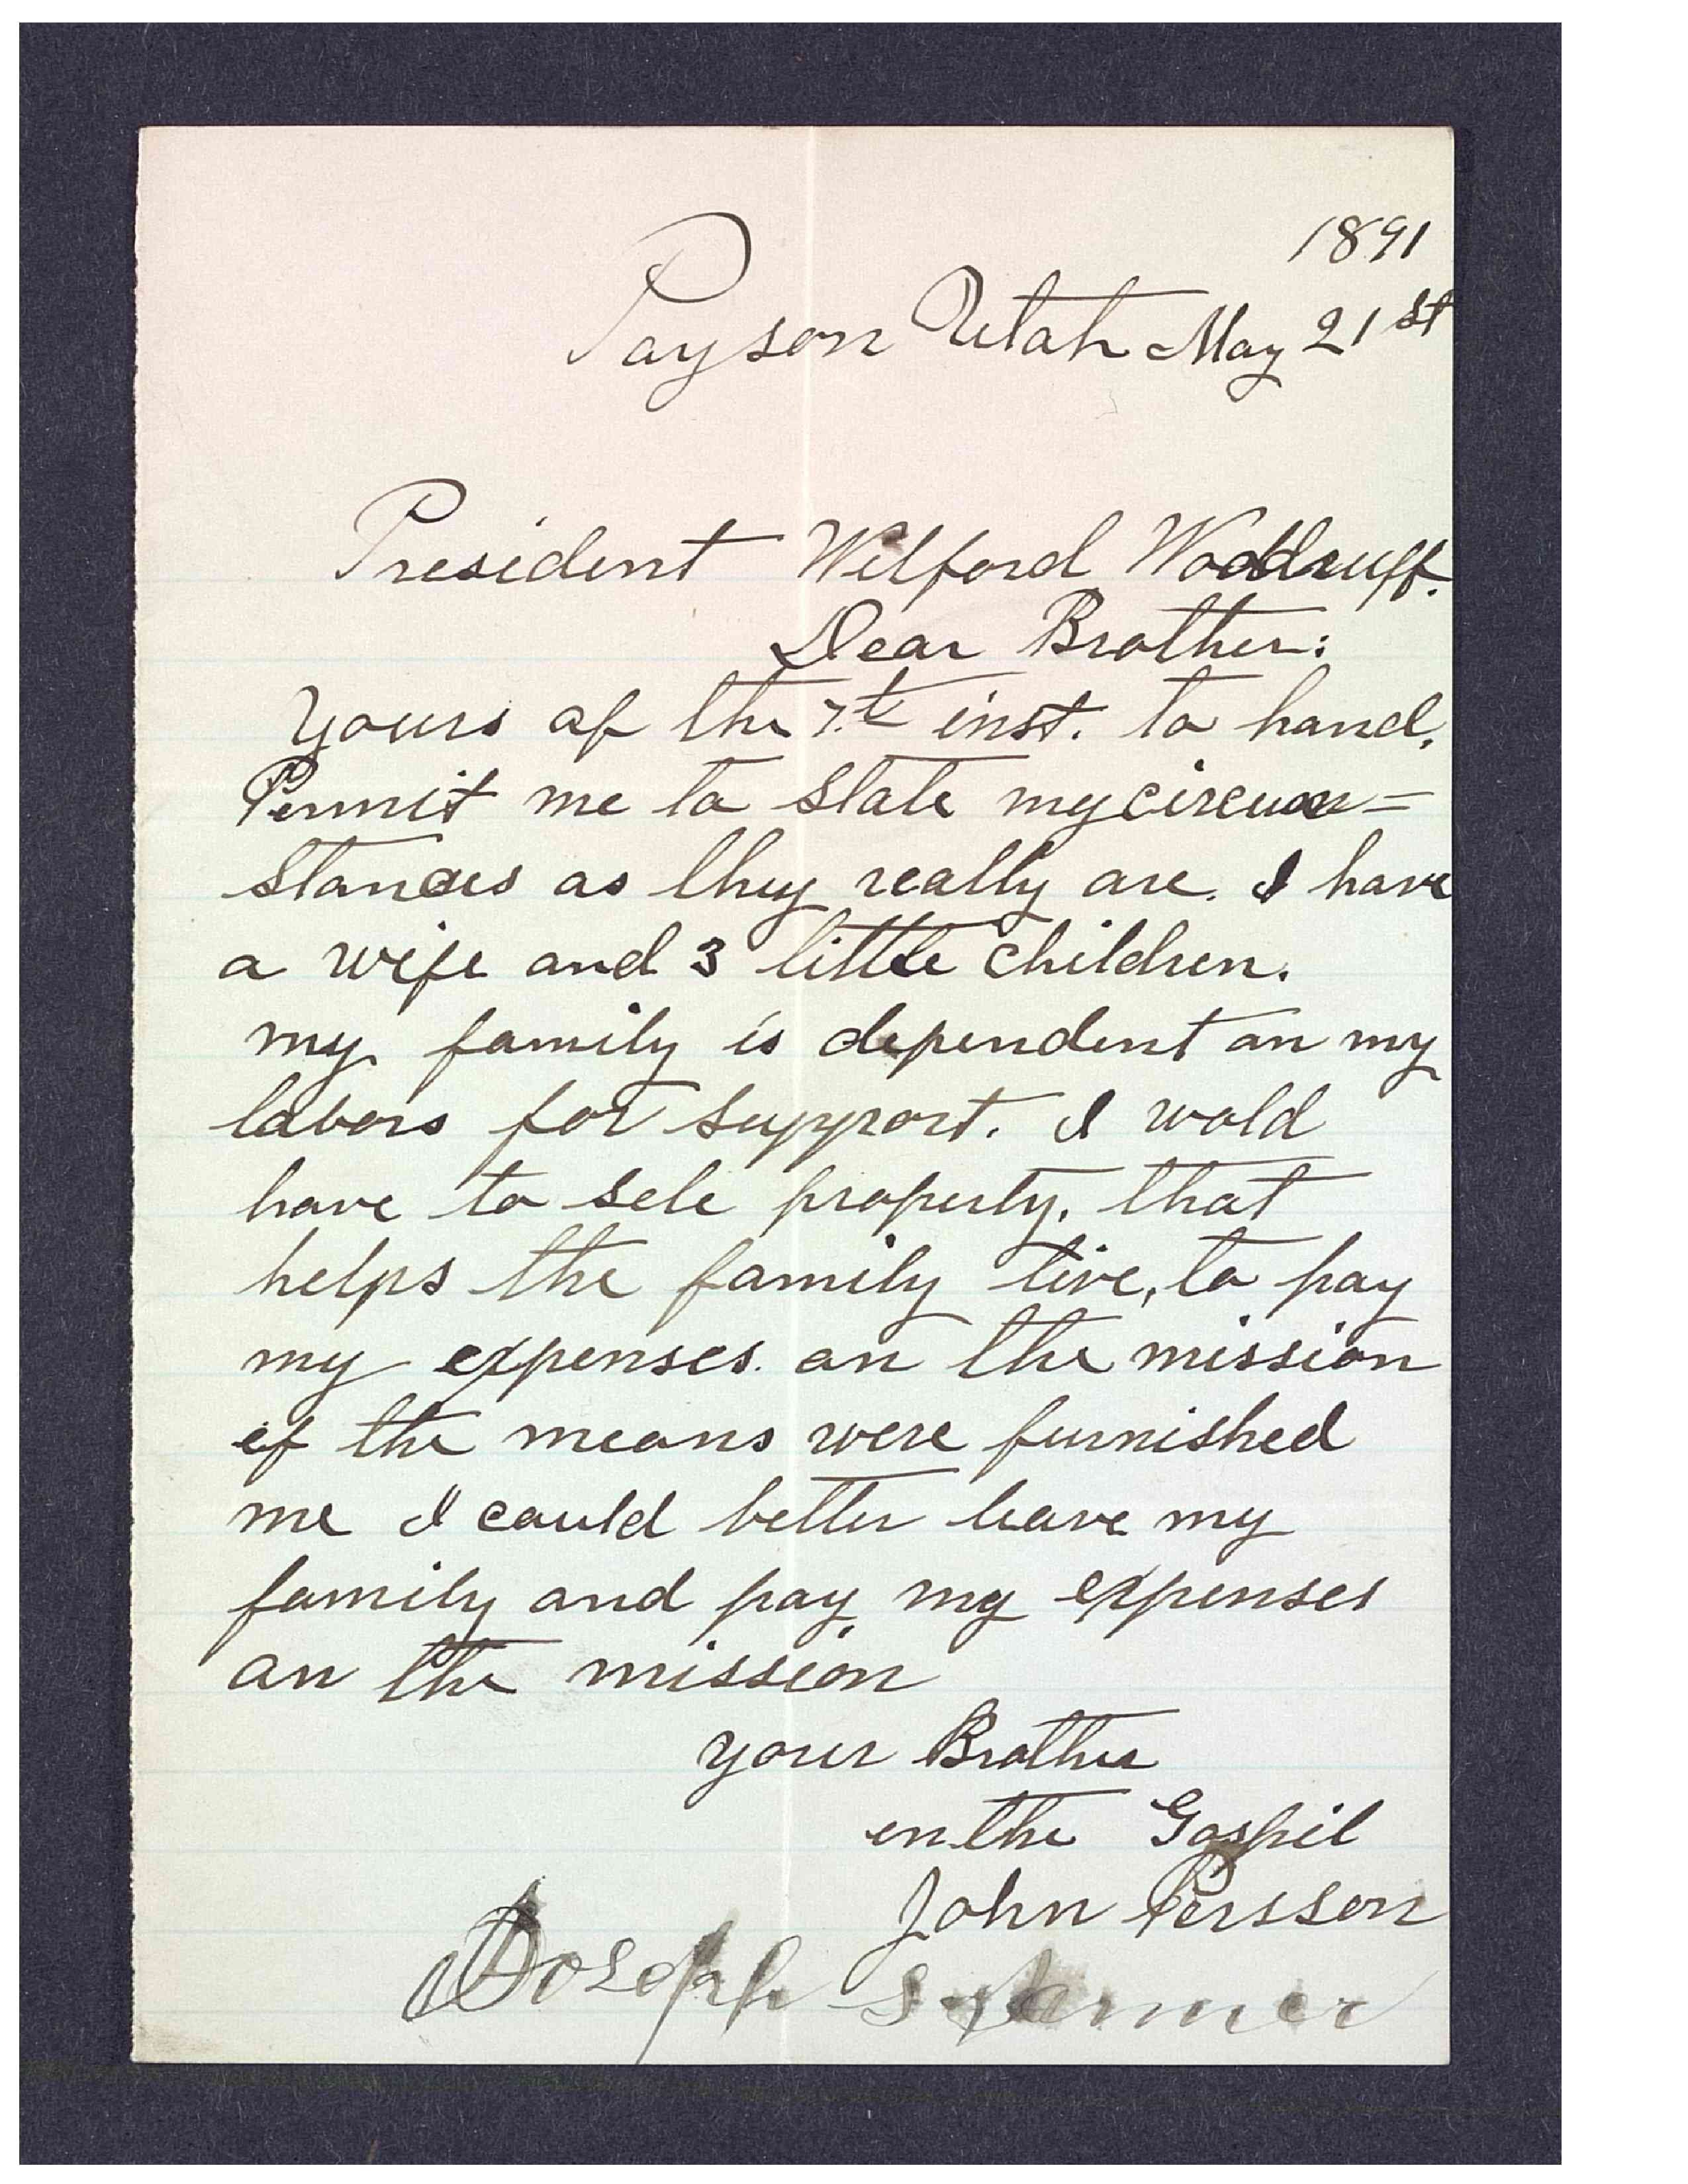 1891
Payson Utah May 21st
President Wilford Woodruff.
Dear Brother:
Yours of the 7.th inst. to hand.
Permit me to state my circum=
stances as they really are. I have
a wife and 3 little children.
my family is dependent on my
labors for support. I wold
have to sele property, that
helps the family live, to pay
my expenses on the mission
if the means were furnished
me I could better leave my
family and pay my expenses
on the mission
your Brother
in the Gospil
John Persson
Joseph S